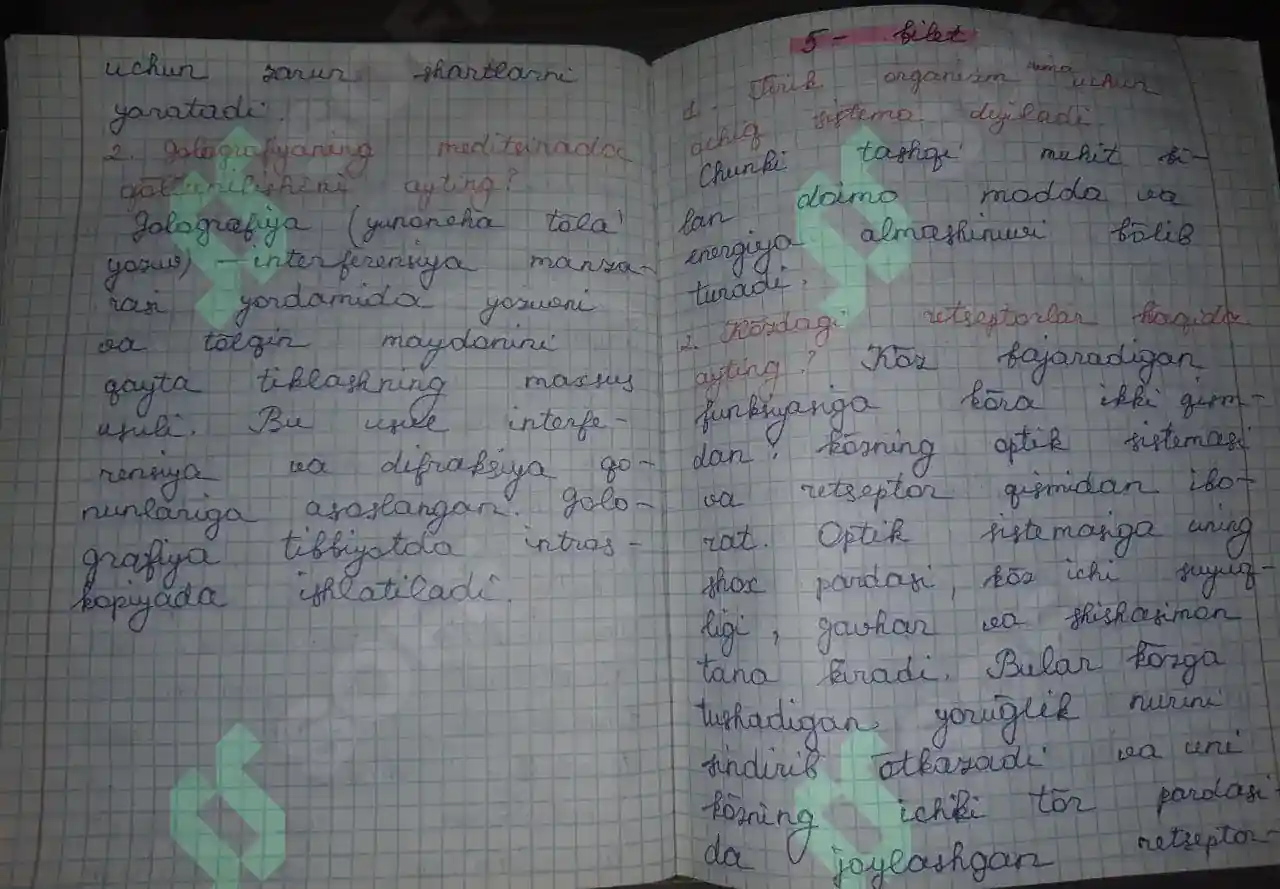 uchun zarur shartlarni
yaratadi.
2. Golografiyaning meditsinada
qo'llanilishini ayting?
Golografiya (yunoncha tōla
yozuv) – interferensiya manza-
rasi yordamida yozuvni
va tōlqin maydonini
qayta tiklashning maxsus
usuli. Bu usul interfe-
rensiya va difraksiya qo-
nunlariga asoslangan. Golo-
grafiya tibbiyotda intros-
kopiyada ishlatiladi.
5- bilet
1. Tirik organizm nima uchun
ochiq sistema deyiladi.
Chunki tashqi muhit bi-
lan doimo modda va
energiya almashinuvi bōlib
turadi.
2. Kōzdagi retseptorlar haqida
ayting? Kōz bajaradigan
funksiyasiga kōra ikki qism-
dan: kōzning optik sistemasi
va retseptor qismidan ibo-
rat. Optik sistemasiga uning
shox pardasi, kōz ichi suyuq-
ligi, gavhar va shishasimon
tana kiradi. Bular kōzga
tushadigan yorug̅lik nurini
sindirib ōtkazadi va uni
kōzning ichki tōr pardasi-
da joylashgan retseptor-